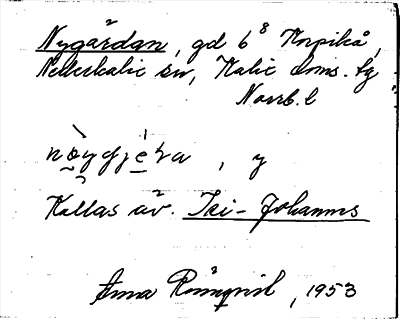 Nygårdan, gd 6⁸ Korpikå,
Nederkalix sn, Kalix doms. tg
Norrb. l
nøydjè̱ra, y
Kallas äv. Isi-Johanns
Anna Rönnqvist, 1953